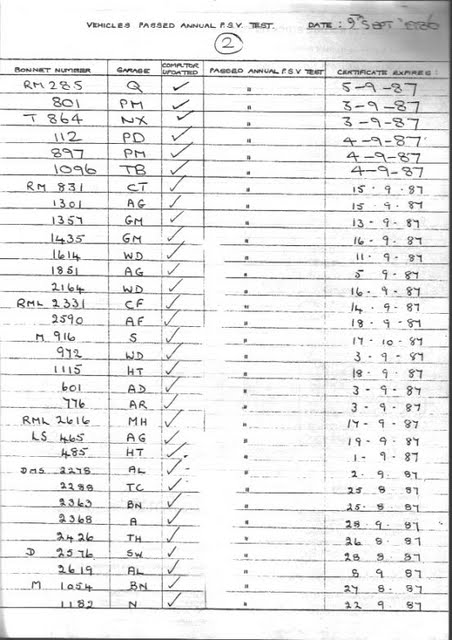 VEHICLES PASSED ANNUAL P.S.V. TEST. DATE: 9TH SEPT 1986
2
BONNET NUMBER GARAGE COMPUTOR UPDATED PASSED ANNUAL P.S.V TEST CERTIFICATE EXPIRES:
RM 285 Q ✓ " 5-9-87
801 PM ✓ " 3-9-87
T 864 NX ✓ " 3-9-87
112 PD ✓ " 4-9-87
897 PM ✓ " 4-9-87
1096 TB ✓ " 4-9-87
RM 831 CT ✓ " 15.9.87
1301 AG ✓ " 15.9.87
1357 GM ✓ " 13-9.87
1435 GM ✓ " 16-9.87
1614 WD ✓ " 11.9.87
1851 AG ✓ " 5 9-87
2164 WD ✓ " 16-9.87
RML 2331 CF ✓ " 14.9.87
2590 AF ✓ " 18.9.87
M 916 S ✓ " 17-10-87
972 WD ✓ " 3-9-87
1115 HT ✓ " 18.9.87
601 AD ✓ " 3-9-87
776 AR ✓ " 3-9.87
RML 2616 MH ✓ " 17-9-87
LS 465 AG ✓ " 19-9.87
485 HT ✓ " 1-9.87
DMS 2278 AL ✓ " 2.9.87
2288 TC ✓ " 25 8.87
2363 BN ✓ " 25.8.87
2368 A ✓ " 28.9.87
2426 TH ✓ " 26.8.87
D 2576 SW ✓ " 28 8.87
2619 AL ✓ " 8 9 87
M 1054 BN ✓ " 27 8.87
1182 N ✓ " 22 9 87